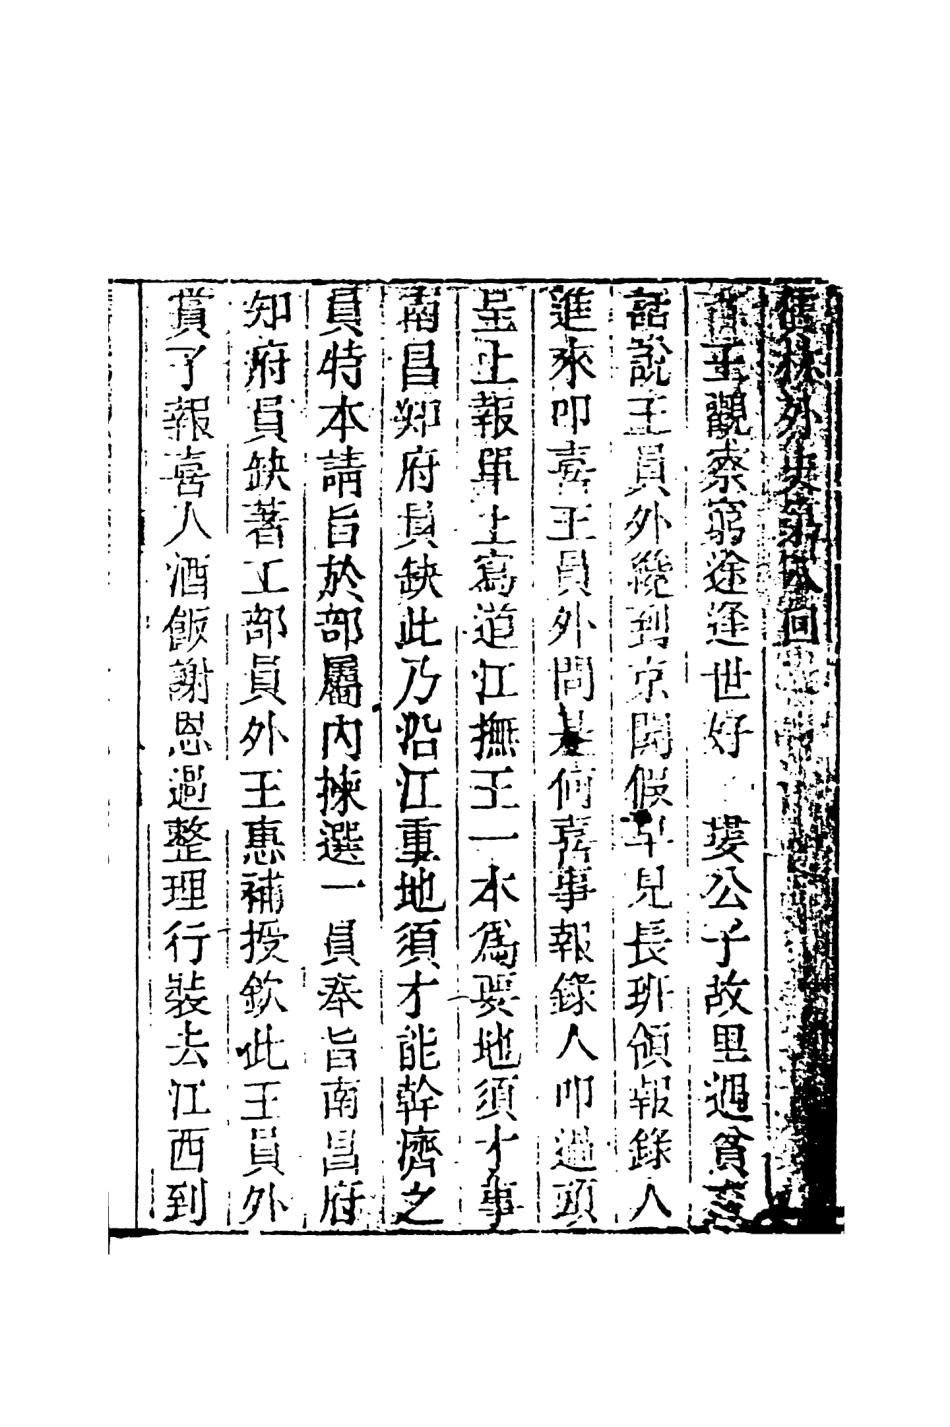 儒林外史第八回
王觀察窮途逢世好 婁公子故里遇貧交
話說王員外纔到京開假早見長班領報錄人
進來叩喜王員外問是何喜事報錄人叩過頭
呈上報單上寫道江撫王一本爲要地須才事
南昌知府員缺此乃沿江重地須才能幹濟之
員特本請旨於部屬內揀選一員奉旨南昌府
知府員缺著工部員外王惠補授欽此王員外
賞了報喜人酒飯謝恩過整理行裝去江西到